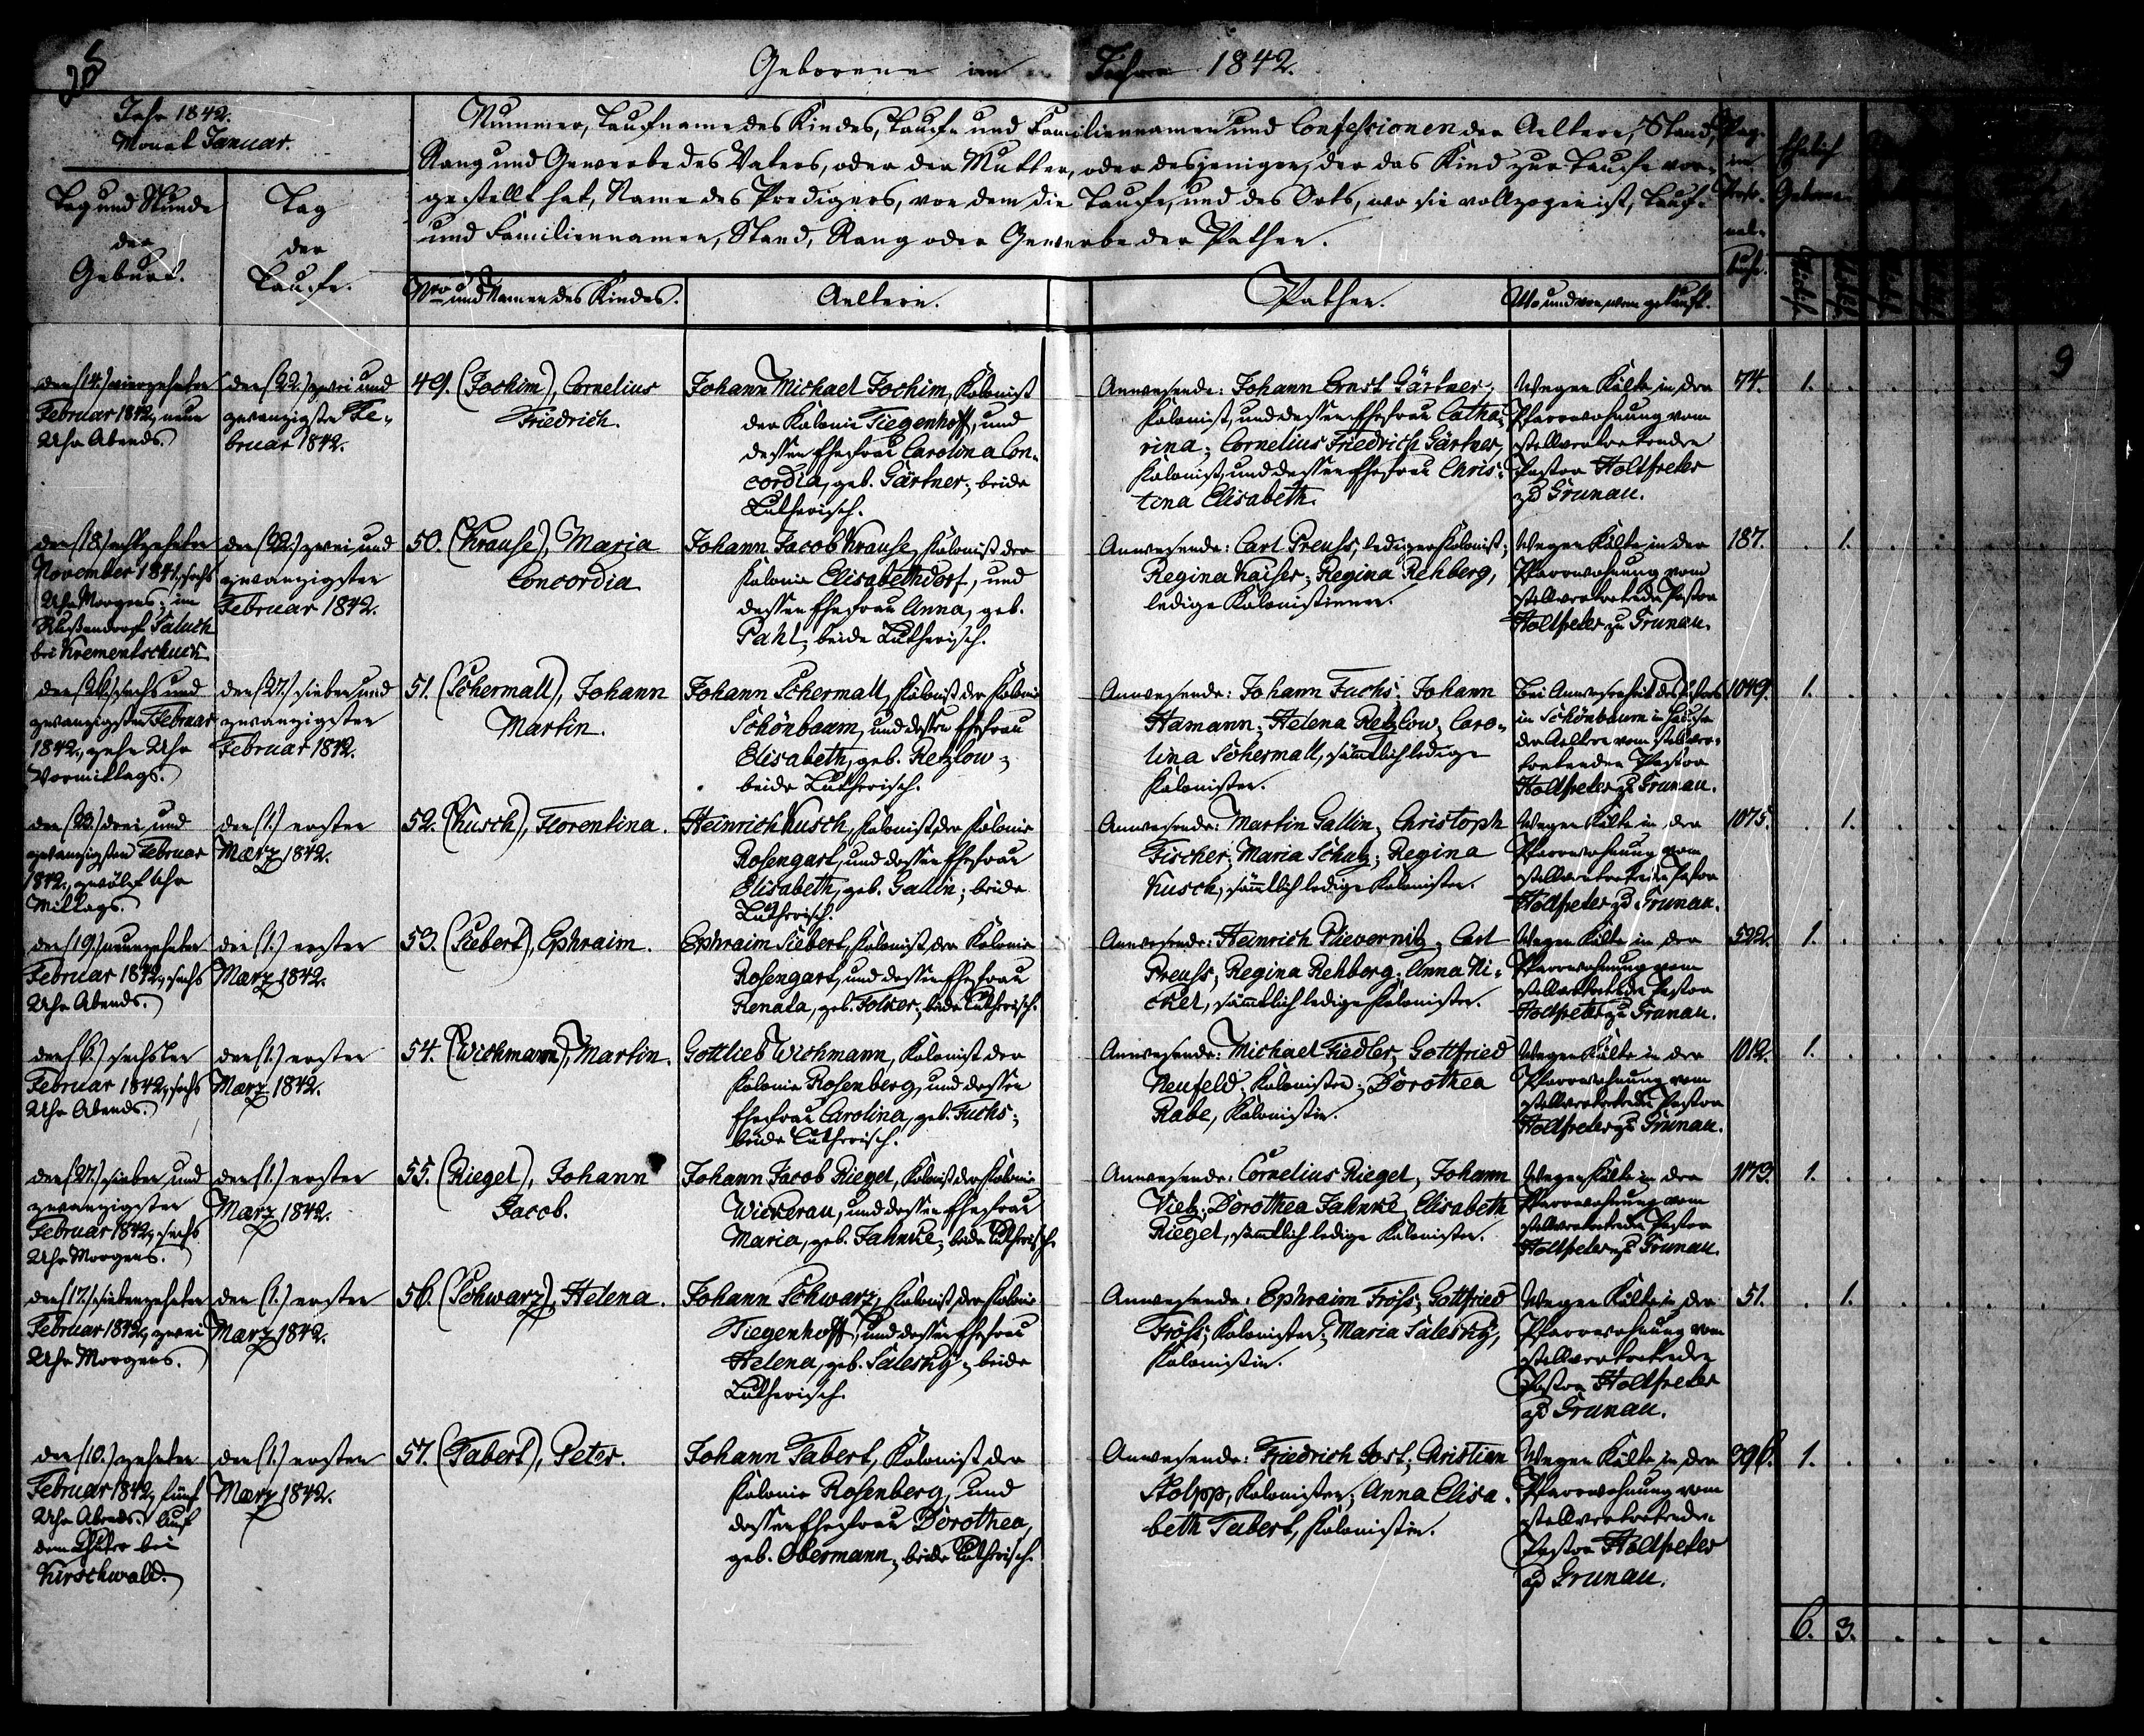 Geborene im Jahre 1842.
Jahr 1842.
Monat Januar.
Tag und Stunde
der
Geburt.
Tag
der
Taufe.
Nummer, Taufname des Kindes, Taufe und Familiennamen und Confessionen der Aeltern, Stand,
Rang und Gewerbe des Vaters, oder der Mutter, oder desjenigen, der das Kind zur Taufe vor-
gestellt hat, Name des Predigers, von dem die Taufe, und des Orts, wo sie vollzogen ist, Tauf-
und Familiennamen, Stand, Rang oder Gewerbe der Pathen.
Nro und Namen des Kindes.
Aeltern.
Pathen.
Wo und von wem getauft.
Ehelich
Geborne
9
den (14.) vierzehnten
Februar 1842, neun
Uhr Abends.
den (22.) zwei und
zwanzigsten Fe-
bruar 1842.
49. (Jochim), Cornelius
Friedrich.
Johann Michael Jochim, Kolonist
der Kolonie Tiegenhoff, und
dessen Ehefrau Carolina Con-
cordia, geb. Gärtner; beide
Lutherisch.
Anwesende: Johann Ernst Gärtner,
Kolonist, und dessen Ehefrau Catha-
rina; Cornelius Friedrich Gärtner,
Kolonist, und dessen Ehefrau Chris-
tina Elisabeth.
Wegen Kälte in der
Pfarrwohnung vom
stellvertretenden
Pastor Holtfreter
zu Grunau.
74.
1.
den (18.) achtzehnten
November 1841, sechs
Uhr Morgens; im
Russendorf Saluch
bei Krementschuck.
den (22.) zwei und
zwanzigsten
Februar 1842.
50. (Krause), Maria
Concordia
Johann Jacob Krause, Kolonist der
Kolonie Elisabethdorf, und
dessen Ehefrau Anna, geb.
Pahl; beide Lutherisch.
Anwesende: Carl Preuss, lediger Kolonist;
Regina Kaiser; Regina Rehberg,
ledige Kolonistinnen.
Wegen Kälte in der
Pfarrwohnung vom
stellvertretenden Pastor
Holtfreter zu Grunau.
187.
1.
den (26.) sechs und
zwanzigsten Februar
1842, zehn Uhr
Vormittags.
den (27.) sieben und
zwanzigsten
Februar 1842.
51. (Schermall), Johann
Martin.
Johann Schermall, Kolonist der Kolonie
Schönbaum, und dessen Ehefrau
Elisabeth, geb. Retzlow;
beide Lutherisch.
Anwesende: Johann Fuchs; Johann
Hamann; Helena Retzlow; Caro-
lina Schermall, sämtlich ledige
Kolonisten.
Bei Anwesenheit des Pastors
in Schönbaum im Hause
der Aeltern vom stellver-
tretenden Pastor
Holtfreter zu Grunau.
1049.
1.
den (23.) drei und
zwanzigsten Februar
1842, zwölf Uhr
Mittags.
den (1.) ersten
Maerz 1842.
52. (Kusch), Florentina.
Heinrich Kusch, Kolonist der Kolonie
Rosengart, und dessen Ehefrau
Elisabeth, geb. Gallin; beide
Lutherisch.
Anwesende: Martin Gallin; Christoph
Fischer; Maria Schulz; Regina
Kusch, sämtlich ledige Kolonisten.
Wegen Kälte in der
Pfarrwohnung vom
stellvertretenden Pastor
Holtfreter zu Grunau.
1075.
1.
den (19.) neunzehnten
Februar 1842, sechs
Uhr Abends.
den (1.) ersten
Maerz 1842.
53. (Siebert), Ephraim.
Ephraim Siebert, Kolonist der Kolonie
Rosengart, und dessen Ehefrau
Renata, geb. Folker; beide Lutherisch.
Anwesende: Heinrich Plievernitz; Carl
Preuss; Regina Rehberg; Anna Ni-
ckel, sämtlich ledige Kolonisten.
Wegen Kälte in der
Pfarrwohnung vom
stellvertretenden Pastor
Holtfreter zu Grunau.
522.
1.
den (6.) sechsten
Februar 1842, sechs
Uhr Abends.
den (1.) ersten
Maerz 1842.
54. (Wichmann), Martin.
Gottlieb Wichmann, Kolonist der
Kolonie Rosenberg, und dessen
Ehefrau Carolina, geb. Fuchs;
beide Lutherisch.
Anwesende: Michael Fiedler, Gottfried
Neufeld, Kolonisten; Dorothea
Rabe, Kolonistin.
Wegen Kälte in der
Pfarrwohnung vom
stellvertretenden Pastor
Holtfreter zu Grunau.
1012.
1.
den (27.) sieben und
zwanzigsten
Februar 1842, sechs
Uhr Morgens.
den (1.) ersten
Maerz 1842.
55. (Riegel), Johann
Jacob.
Johann Jacob Riegel, Kolonist der Kolonie
Wickerau, und dessen Ehefrau
Maria, geb. Jahnke; beide Lutherisch.
Anwesende: Cornelius Riegel, Johann
Vietz; Dorothea Jahnke, Elisabeth
Riegel, sämtlich ledige Kolonisten.
Wegen Kälte in der
Pfarrwohnung vom
stellvertretenden Pastor
Holtfreter zu Grunau.
1173.
1.
den (17.) siebenzehnten
Februar 1842, zwei
Uhr Morgens.
den (1.) ersten
Maerz 1842.
56. (Schwarz), Helena.
Johann Schwarz, Kolonist der Kolonie
Tiegenhoff, und dessen Ehefrau
Helena, geb. Salesky; beide
Lutherisch.
Anwesende: Ephraim Fröss; Gottfried
Fröss; Kolonisten; Maria Salesky,
Kolonistin.
Wegen Kälte in der
Pfarrwohnung vom
stellvertretenden
Pastor Holtfreter
zu Grunau.
51.
1.
den (10.) zehnten
Februar 1842, fünf
Uhr Abends. Auf
dem Chutor bei
Kirschwald.
den (1.) ersten
Maerz 1842.
57. (Tabert), Peter.
Johann Tabert, Kolonist der
Kolonie Rosenberg, und
dessen Ehefrau Dorothea,
geb. Obermann; beide Lutherisch.
Anwesende: Friedrich Jost; Christian
Stolpp, Kolonisten; Anna Elisa-
beth Tabert, Kolonistin.
Wegen Kälte in der
Pfarrwohnung vom
stellvertretenden
Pastor Holtfreter
zu Grunau.
396.
1.
6. 3.